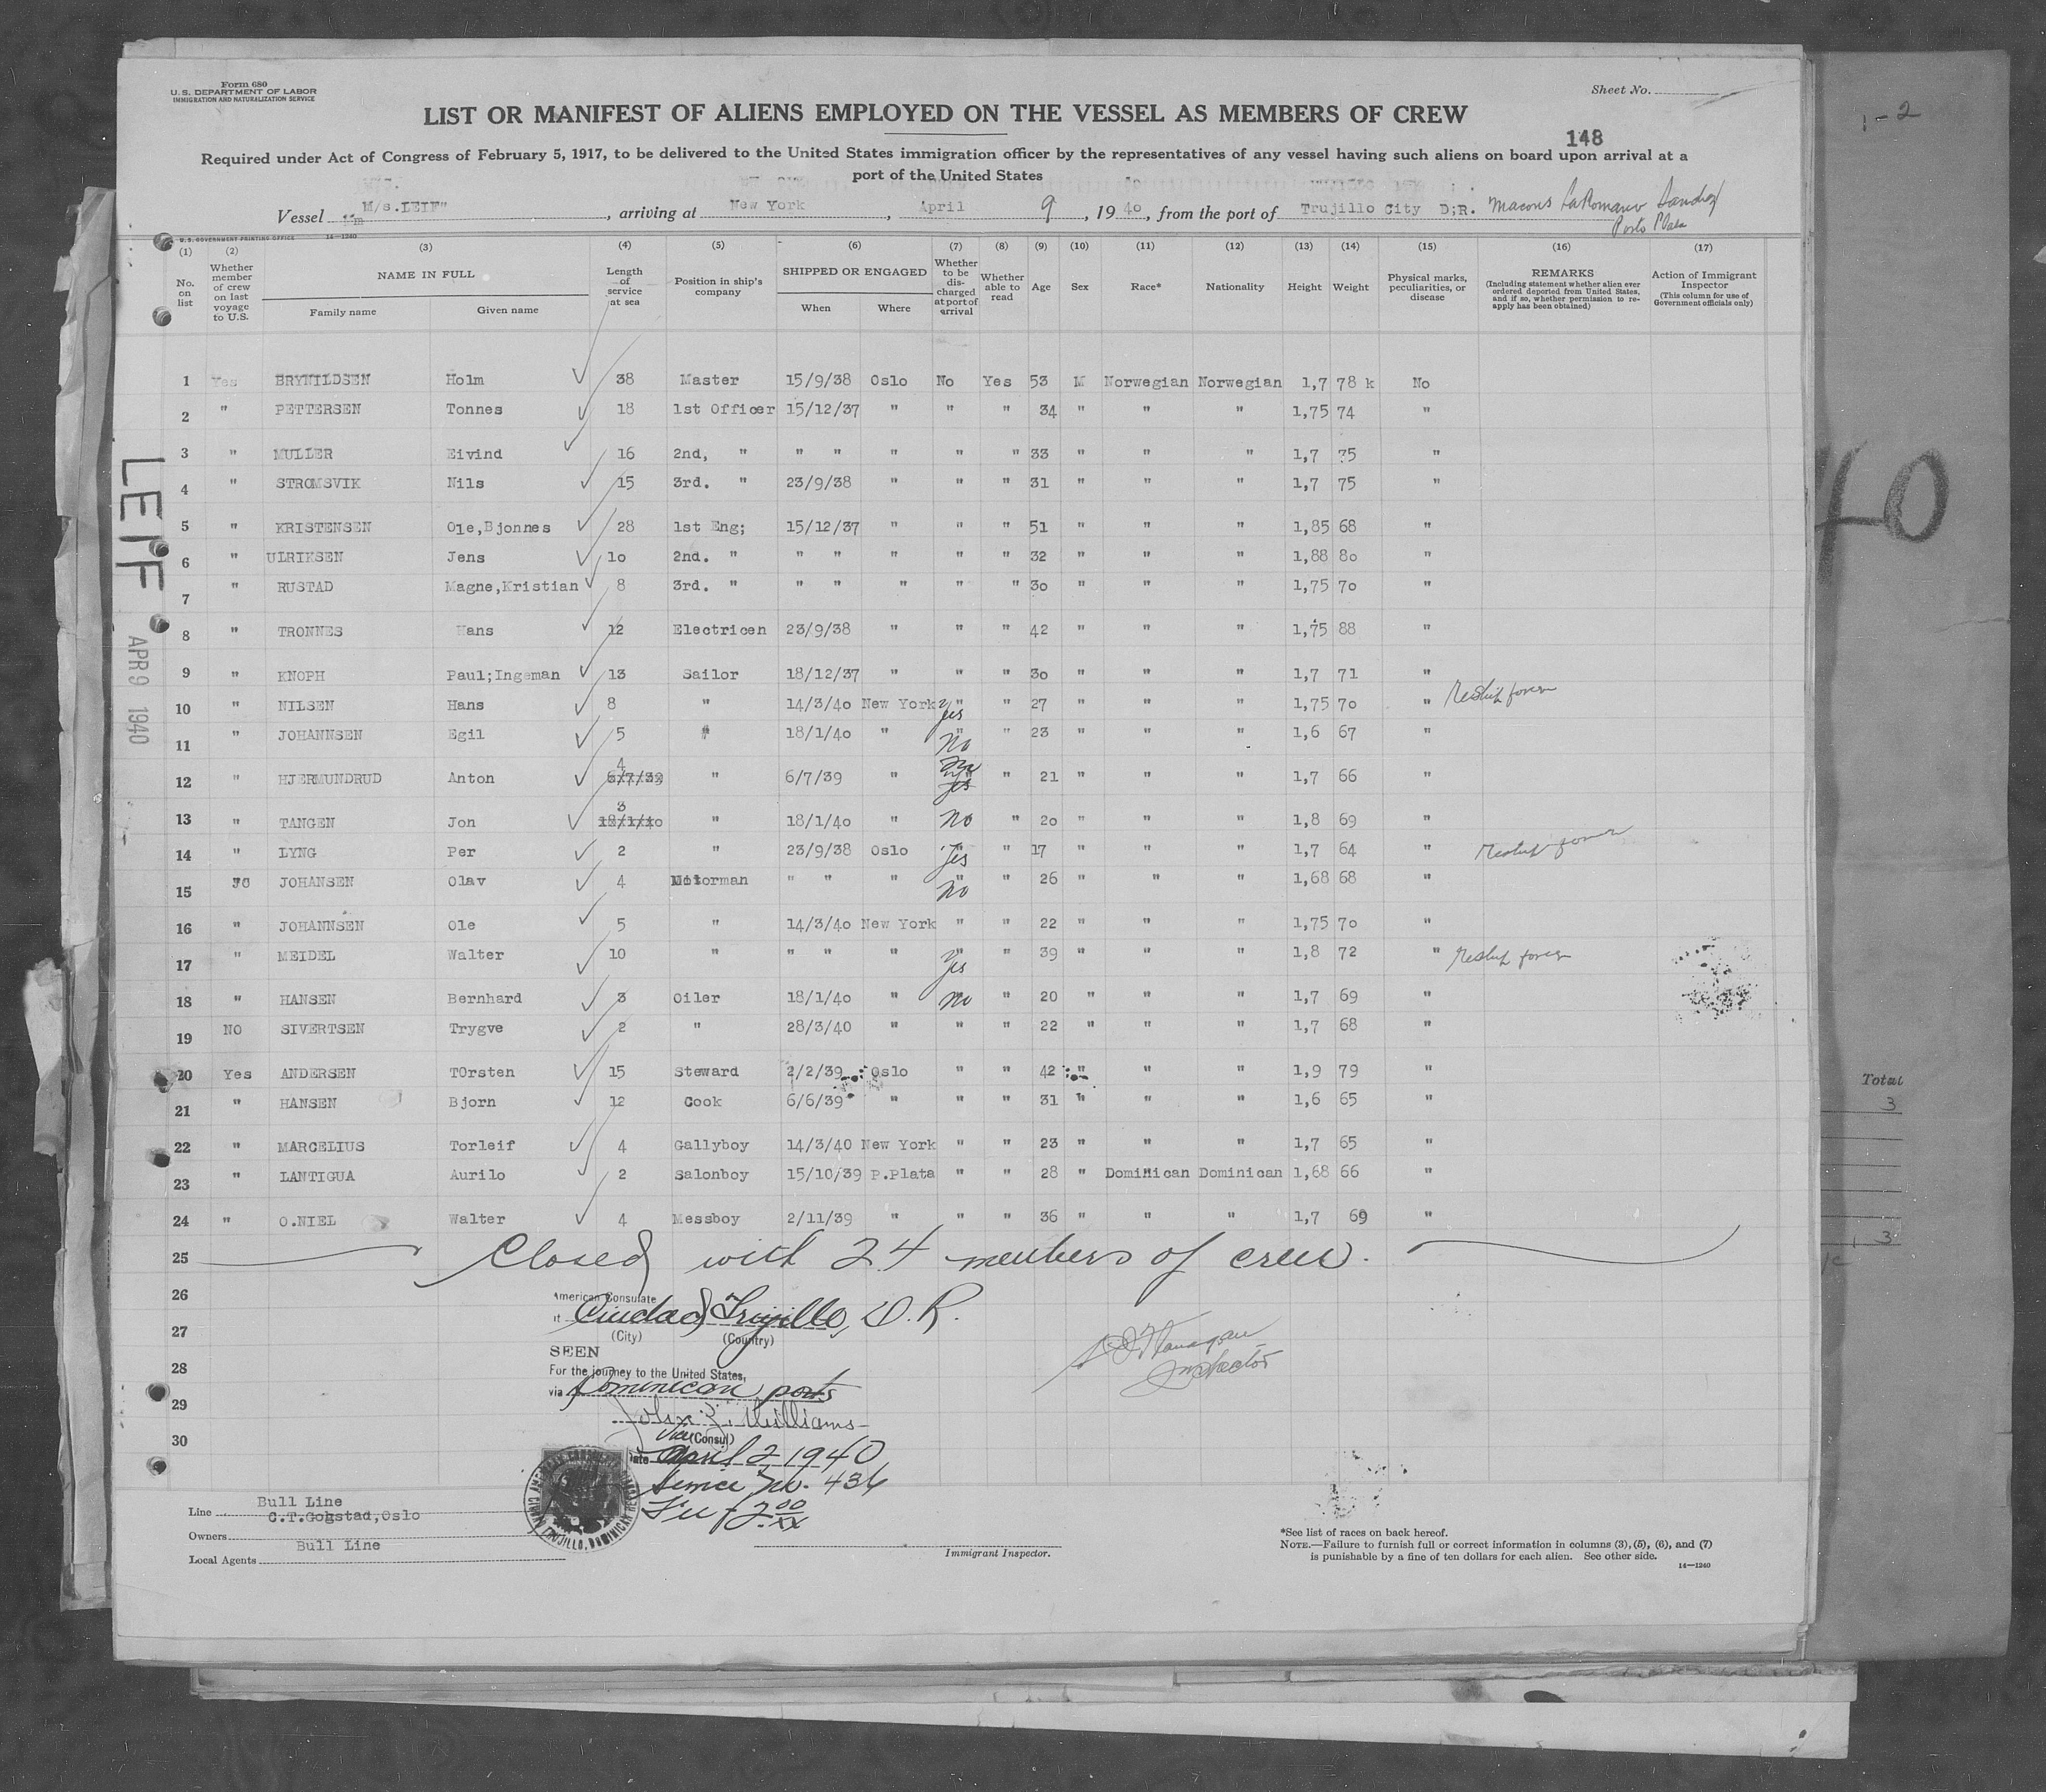 Form 680
U. S. DEPARTMENT OF LABOR
IMMIGRATION AND NATURALIZATION SERVICE
Sheet No.
1-2
LIST OR MANIFEST OF ALIENS EMPLOYED ON THE VESSEL AS MEMBERS OF CREW
148
Required under Act of Congress of February 5, 1917, to be delivered to the United States immigration officer by the representatives of any vessel having such aliens on board upon arrival at a
port of the United States
Vessel M/s.LEIF" , arriving at New York , April 9 , 1940 , from the port of Trujillo City D;R. Macoris LaRomana Sanchez
Porto Plata
U. S. GOVERNMENT PRINTING OFFICE 14-1240
(1) (2) (3) (4) (5) (6) (7) (8) (9) (10) (11) (12) (13) (14) (15) (16) (17)
No. on list Whether member of crew on last voyage to U.S. NAME IN FULL Family name Given name Length of service at sea Position in ship's company SHIPPED OR ENGAGED When Where Whether to be discharged at port of arrival Whether able to read Age Sex Race* Nationality Height Weight Physical marks, peculiarities, or disease REMARKS (Including statement whether alien ever ordered deported from United States, and if so, whether permission to reapply has been obtained) Action of Immigrant Inspector (This column for use of Government officials only)
1 Yes BRYNILDSEN Holm 38 Master 15/9/38 Oslo No Yes 53 M Norwegian Norwegian 1,7 78 k No
2 " PETTERSEN Tonnes 18 1st Officer 15/12/37 " " " 34 " " " 1,75 74 "
3 " MULLER Eivind 16 2nd, " " " " " " 33 " " " 1,7 75 "
4 " STROMSVIK Nils 15 3rd. " 23/9/38 " " " 31 " " " 1,7 75 "
5 " KRISTENSEN Ole,Bjonnes 28 1st Eng; 15/12/37 " " " 51 " " " 1,85 68 "
6 " ULRIKSEN Jens 1o 2nd. " " " " " " 32 " " " 1,88 8o "
7 " RUSTAD Magne,Kristian 8 3rd. " " " " " " 3o " " " 1,75 7o "
8 " TRONNES Hans 12 Electricen 23/9/38 " " " 42 " " " 1,75 88 "
9 " KNOPH Paul;Ingeman 13 Sailor 18/12/37 " " " 3o " " " 1,7 71 "
10 " NILSEN Hans 8 " 14/3/4o New York " Yes " 27 " " " 1,75 7o " Reship foreign
11 " JOHANNSEN Egil 5 " 18/1/4o " " No " 23 " " " 1,6 67 "
12 " HJERMUNDRUD Anton 4 6/7/39 " 6/7/39 " No " Yes " 21 " " " 1,7 66 "
13 " TANGEN Jon 3 18/1/4o " 18/1/4o " No " 2o " " " 1,8 69 "
14 " LYNG Per 2 " 23/9/38 Oslo " Yes " 17 " " " 1,7 64 " Reship foreign
15 JOHANSEN Olav 4 Motorman " " " " No " 26 " " " 1,68 68 "
16 " JOHANNSEN Ole 5 " 14/3/4o New York " " 22 " " " 1,75 7o "
17 " MEIDEL Walter 10 " " " " " Yes " 39 " " " 1,8 72 " Reship foreign
18 " HANSEN Bernhard 3 Oiler 18/1/40 " No " 20 " " " 1,7 69 "
19 NO SIVERTSEN Trygve 2 " 28/3/40 " " " 22 " " " 1,7 68 "
20 Yes ANDERSEN TOrsten 15 Steward 2/2/39 Oslo " " 42 " " " 1,9 79 "
21 " HANSEN Bjorn 12 Cook 6/6/39 " " " 31 " " " 1,6 65 "
22 " MARCELIUS Torleif 4 Gallyboy 14/3/40 New York " " 23 " " " 1,7 65 "
23 " LANTIGUA Aurilo 2 Salonboy 15/10/39 P.Plata " " 28 " Dominican Dominican 1,68 66 "
24 " O.NIEL Walter 4 Messboy 2/11/39 " " " 36 " " " 1,7 69 "
25 Closed with 24 members of crew.
26
27
28
29
30
American Consulate
at Ciudad Trujillo, D. R.
(City) (Country)
SEEN
For the journey to the United States,
via Dominican ports
John Williams
Vice (Consul)
Date April 2, 1940
Service No. 436
Fee $2.00
Inspector
Line Bull Line
C.T.Gogstad,Oslo
Owners
Bull Line
Local Agents
Immigrant Inspector.
*See list of races on back hereof.
NOTE.—Failure to furnish full or correct information in columns (3), (5), (6), and (7)
is punishable by a fine of ten dollars for each alien. See other side.
14-1240
LEIF
APR 9 1940
40
Total
3
3